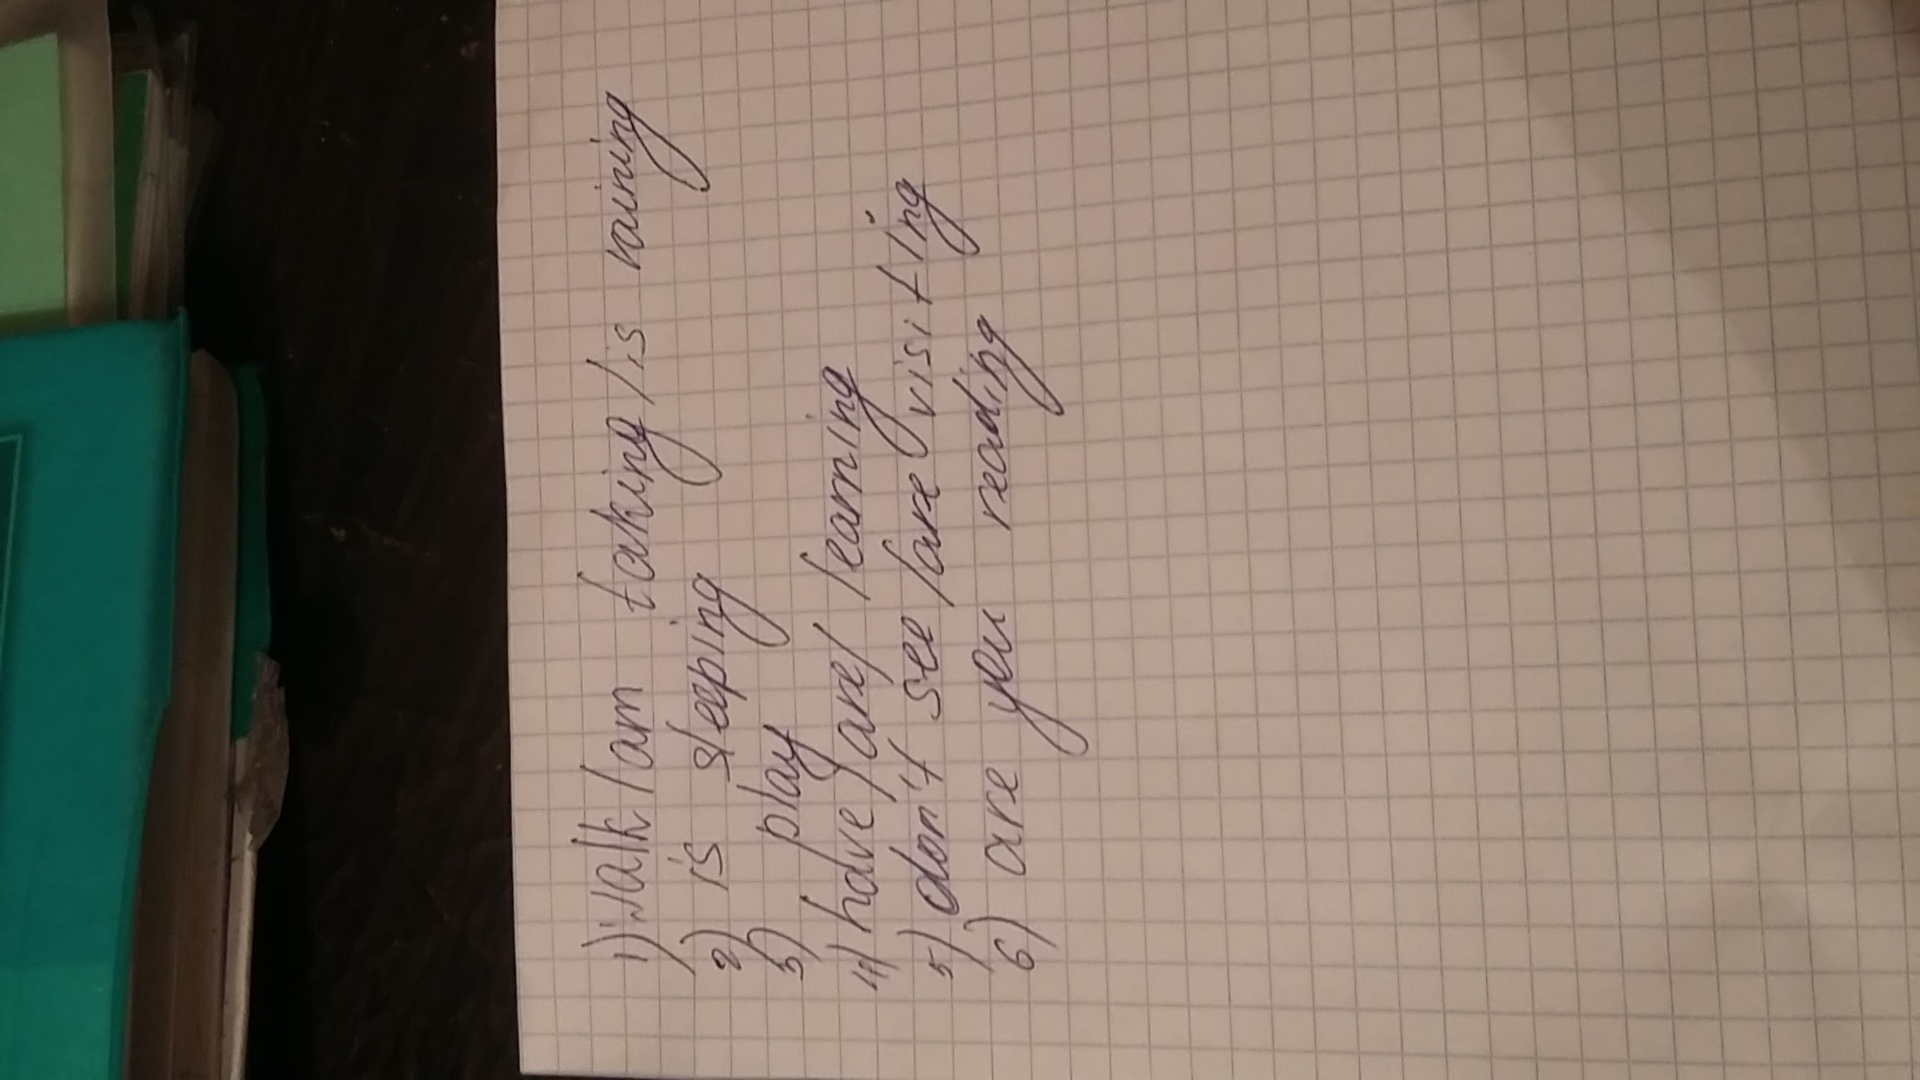 1) walk/am taking/is raining
2) is sleeping
3) play
4) have/are/learning
5) don't see/are visitting
6) are you reading